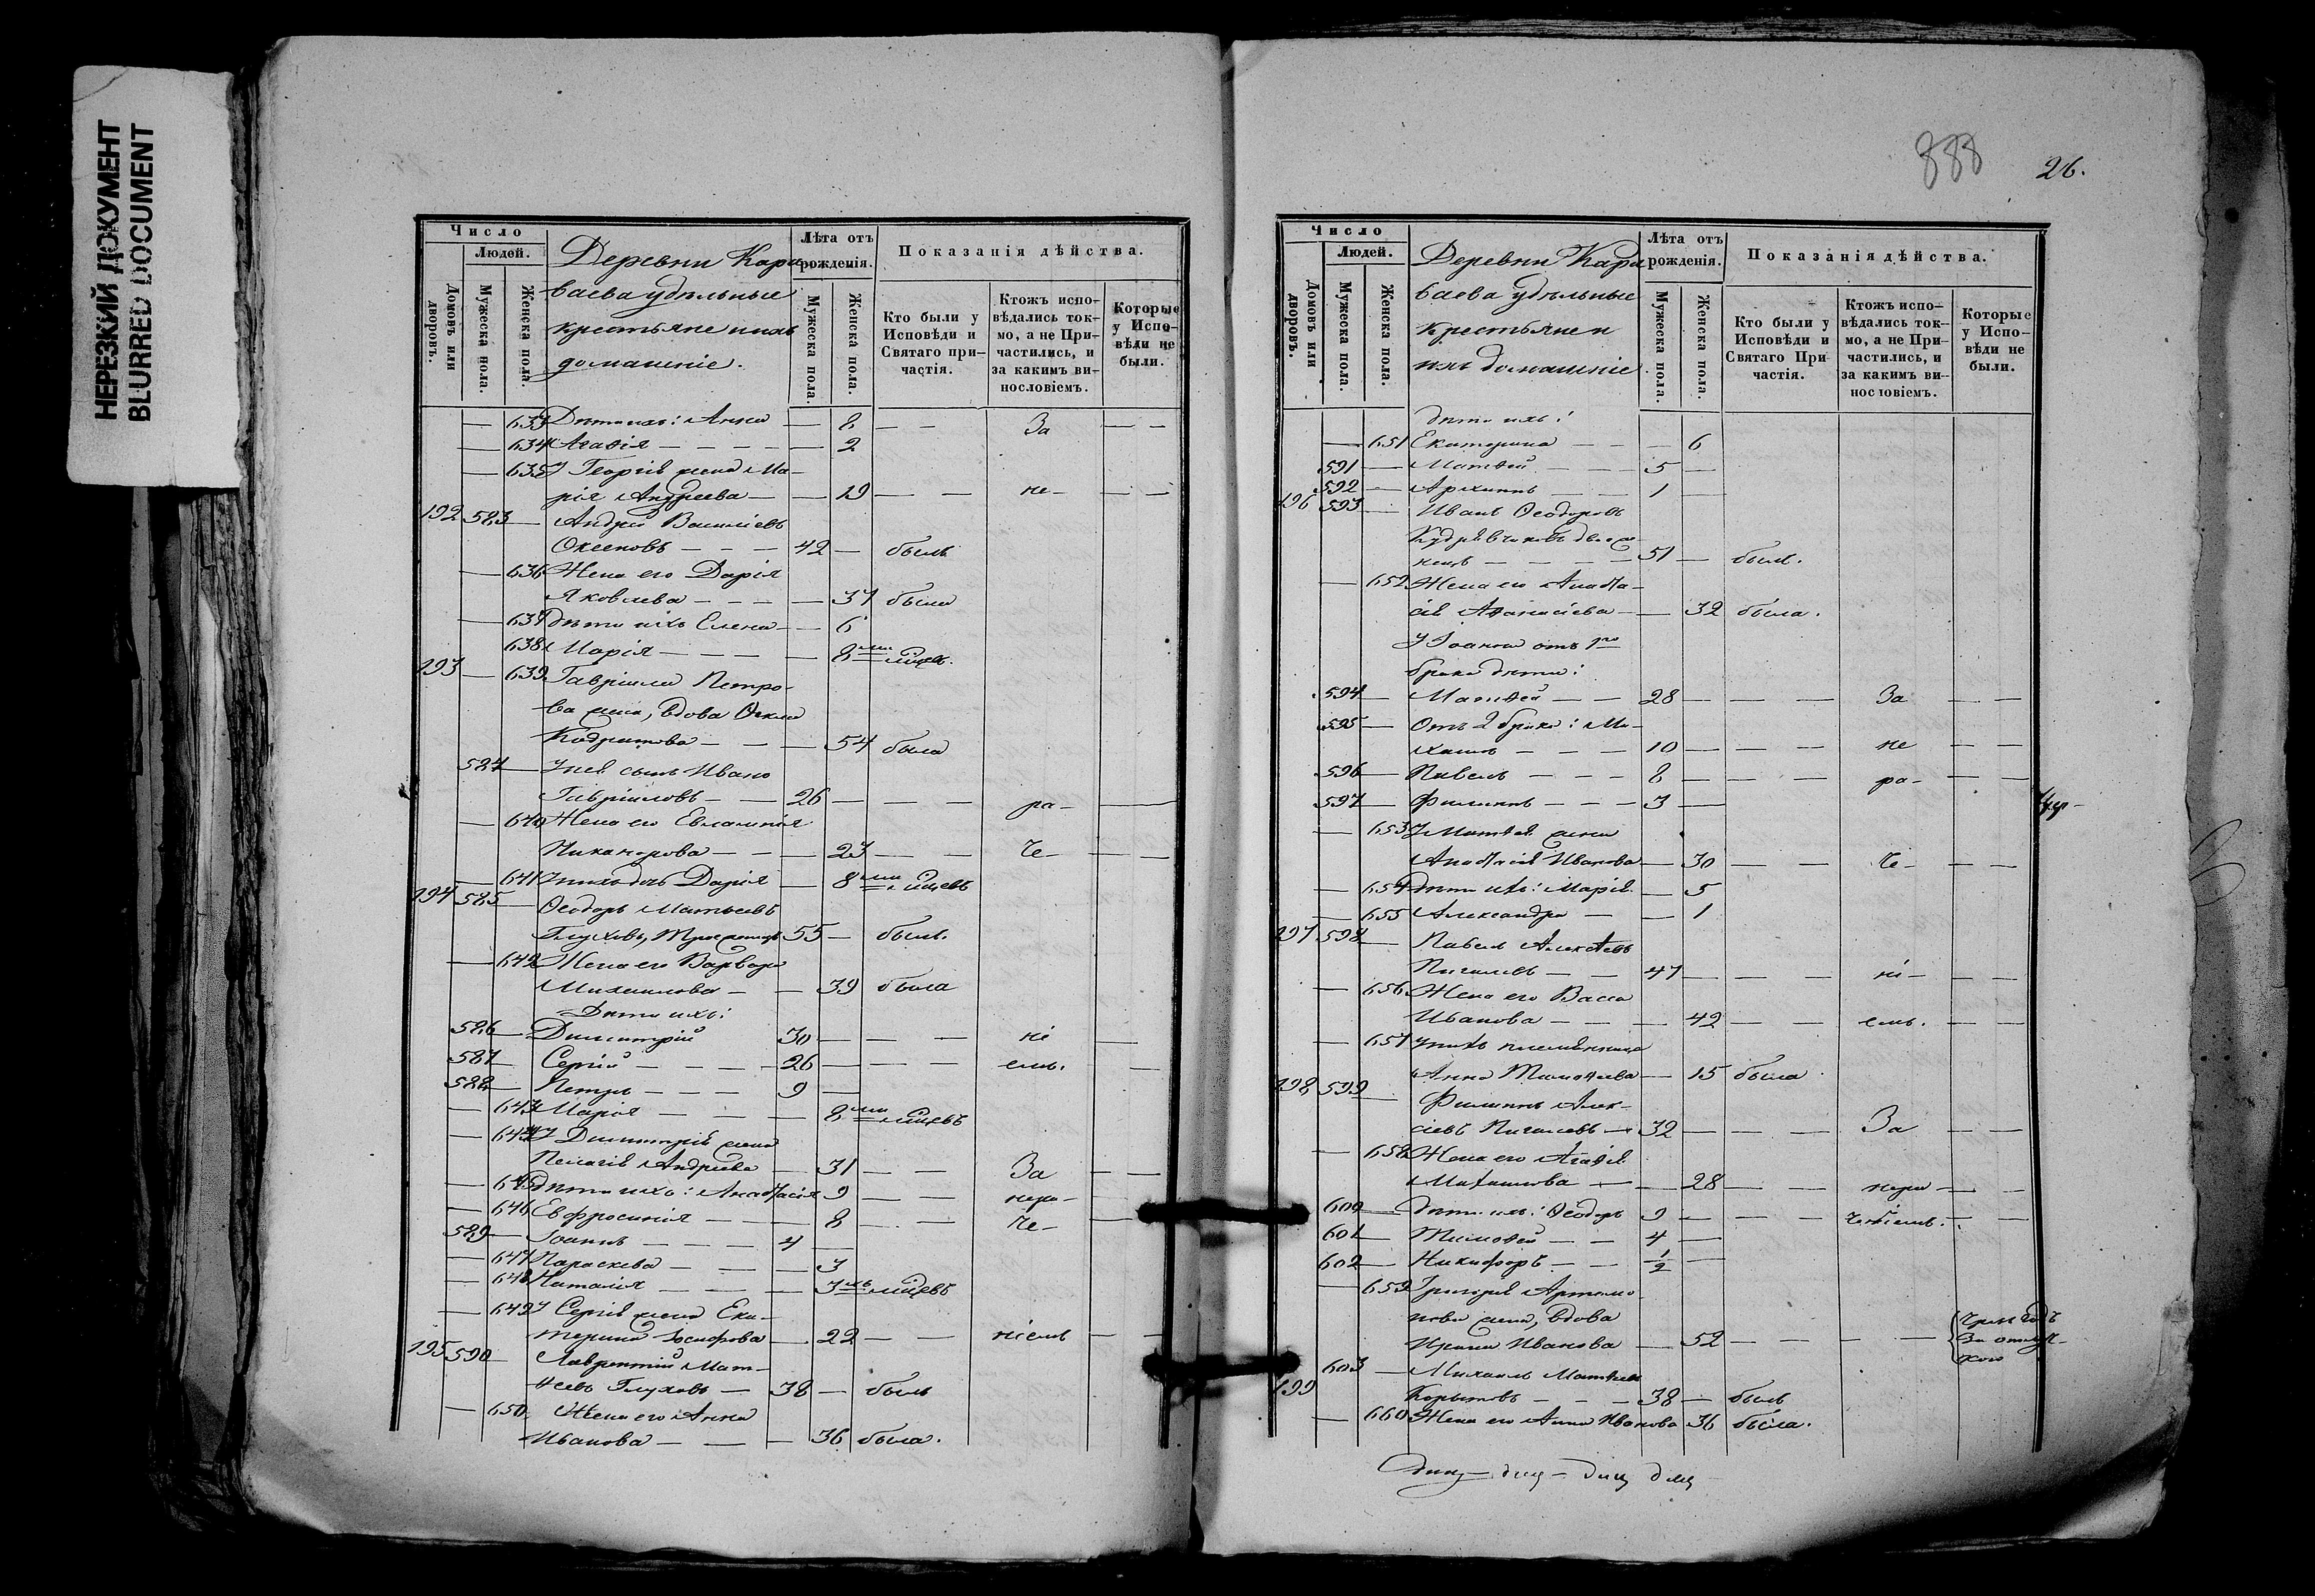 НЕРЕЗКИЙ ДОКУМЕНТ
BLURRED DOCUMENT
Число
Людей.
Домовъ или дворовъ.
Мужеска пола.
Женска пола.
Деревни Кара
баева удѣльные
крестьяне и ихъ
домашніе.
Лѣта отъ рожденія.
Мужеска пола.
Женска пола.
Показанія дѣйства.
Кто были у Исповѣди и Святаго при-частія.
Ктожъ испо-вѣдались ток-мо, а не При-частились, и за какимъ ви-нословіемъ.
Которые у Испо-вѣди не были.
— 633 Дѣти ихъ: Анна — 8 — — За — —
— 634 Агафія — — — — — 2
— 635 У Георгія жена Ма-
рія Андреева — — 19 — — не — — —
192 583 — Андрей Василіевъ
Оксеновъ — — — 42 — былъ
— 636 Жена его Дарія
Яковлева — — — — 37 была
— 637 Дѣти ихъ Елена — — 6
638 Марія — — — — — 8ми мѣцев.
193 — 639 Гавріила Петро-
ва жена, вдова
54 была
584 — У нея сынъ Иванъ
Гавріиловъ — — 26 — — — ра — —
— 640 Жена его Евлампія
Никанорова — — — 23 — — че — — —
— 641 У нихъ дочь Дарія — 8ми мѣцевъ
194 585 — Ѳеодоръ Матѳеевъ
Глуховъ, 55 — былъ.
— 642 Жена его Варвара
Михаилова — — 39 была
Дѣти ихъ:
586 — Димитрій 30 — — — ні —
587 — Сергій — — — — 26 — — — емъ. —
588 — Петръ — — — 9 —
— 643 Марія — — — — 8ми мѣцевъ
— 644 У Димитрія жена
Пелагія Андреева — 31 — — За — —
— 645 Дѣти ихъ: Анастасія 9 — — нера —
— 646 Евфросинія — — — 8 — — че — —
589 — Іоаннъ — — — — 4 —
— 647 Параскева — — — 3
— 648 Наталія — — — — 3хъ мѣцевъ
— 649 У Сергія жена Ека-
терина Іосифова — 22 — — ніемъ — —
195 590 — Лаврентій Мат-
ѳеевъ Глуховъ — 38 — былъ
— 650 Жена его Анна
Иванова — — — 36 была.
888 26.
Число
Людей.
Домовъ или дворовъ.
Мужеска пола.
Женска пола.
Деревни Кара
баева удѣльные
крестьяне и
ихъ домашніе
Лѣта отъ рожденія.
Мужеска пола.
Женска пола.
Показанія дѣйства.
Кто были у Исповѣди и Святаго При частія.
Ктожъ испо-вѣдались ток-мо, а не При-частились, и за какимъ ви-нословіемъ.
Которые у Испо-вѣди не были.
дѣти ихъ:
— 651 Екатерина — — — 6
591 — Матѳей — — — 5 —
592 — Архиппъ — — 1 —
196 593 — Иванъ Ѳеодоровъ
51 — былъ.
— 652 Жена его Анаста-
сія Аѳанасіева — — 32 была.
У Іоанна отъ 1го
брака дѣти:
594 — Матѳей — — 28 — — — За — —
595 — Отъ 2 брака: Ми-
хаилъ — — — 10 — — — не — —
596 — Павелъ — — — 8 — — — ра — — —
597 — Филиппъ — — — 3 —
— 653 У Матѳея жена
Анастасія Иванова — 30 — — че — — —
— 654 Дѣти ихъ: Марія — 5
— 655 Александра — — 1
197 598 — Павелъ Алексѣевъ
Пигалевъ — — 47 — — — ні — — —
— 656 Жена его Васса
Иванова — — — 42 — — емъ. — —
— 657 У нихъ племянница
Анна Тимоѳеева — 15 была
198 599 — Филиппъ Алек-
сіевъ Пигалевъ — 32 — — — За — —
— 658 Жена его Агафія
Михаилова — — 28 — — нера — — —
600 — Дѣти ихъ: Ѳеодоръ 9 — — — ченіемъ. — —
601 — Тимоѳей — — 4 —
602 — Никифоръ — — ½ —
— 659 Григорія Артамо
нова жена, вдова
Ирина Иванова — 52 — — — —
За отлуч-
кою
199 603 — Михаилъ Матѳеевъ
Корытовъ — — — 38 — былъ
— 660 Жена его Анна Иванова 36 была.